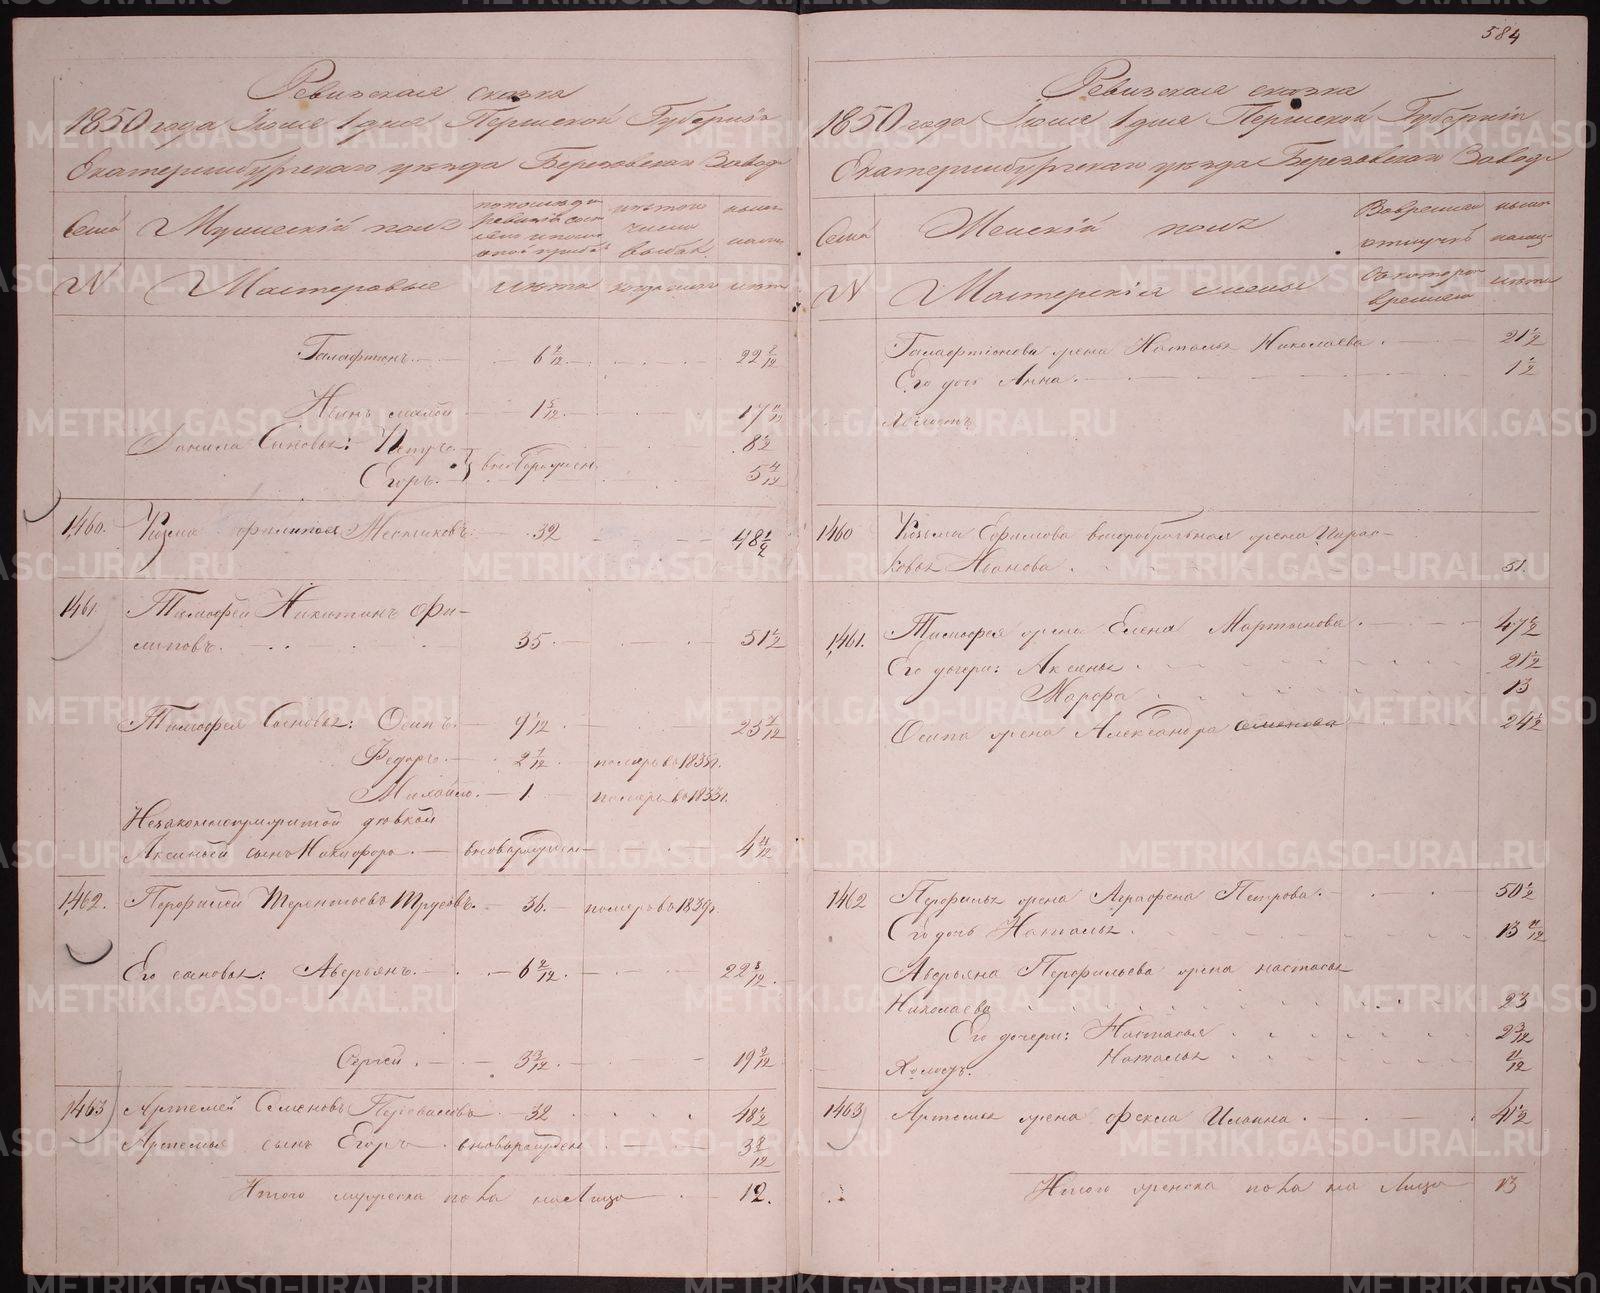 Ревизская сказка
1850 года Июня 1 дня Пермской Губерніи
Екатеринбургскаго уѣзда Березовскаго Завода
Семьи Мужескій полъ по последней ревизіи состояло и после оной прибыло изъ того числа выбыло ныне налицо
№ Мастеровые лѣта когда именно лѣта
Галафтіонъ 6 2/12 22 2/12
Иванъ малой 1 5/12 17 11/12
Данила Сыновья: Петръ 8 1/2
Егоръ вновьрожден. 5 4/12
1460. Козма Филипов Местниковъ 32 48 1/2
1461 Тимофей Никитинъ Фи-
липовъ. 35 51 1/2
Тимофея Сыновья: Осипъ 9 1/12 25 7/12
Федоръ 2 7/12 померъ в 1838 г.
Михайло. 1 померъ в 1833 г.
Незаконноприжитой девкой
Аксиньей сынъ Никифоръ вновьрожден 4 4/12
1462. Перфилей Терентьевъ Трусовъ. 36. померъ в 1839 г.
Его сыновья: Аверьянъ. 6 2/12 22 8/12
Сергей 3 3/12 19 9/12
1463 Артемей Семеновъ Переваловъ 32 48 1/2
Артемья сынъ Егоръ вновьрожден 3 8/12
Итого мужеска пола налицо 12.
584
Ревизская сказка
1850 года Июня 1 дня Пермской Губерніи
Екатеринбургскаго уѣзда Березовскаго Завода
Семьи Женскій полъ Вовременной отлучкѣ ныне налицо
№ Мастерскія жены Съ котораго времени лѣта
Галафтіонова жена Наталья Николаева 21 1/2
Его дочь Анна. 1 1/2
Холостъ
1460 Козьмы Ефимова второбрачная жена Парас-
ковья Иванова 51.
1461. Тимофея жена Елена Мартынова 47 1/2
Его дочери: Аксинья 21 1/2
Марфа 13
Осипа жена Александра Семенова 24 1/2
1462 Перфилья жена Аграфена Петрова 50 1/2
Его дочь Наталья 13 11/12
Аверьяна Перфильева жена Настасья
Николаева 23
Его дочери: Настасья 2 3/12
Холостъ. Наталья 11/12
1463 Артемья жена Фекла Ильина 41 1/2
Итого женска пола на лицо 13
METRIKI.GASO-URAL.RU